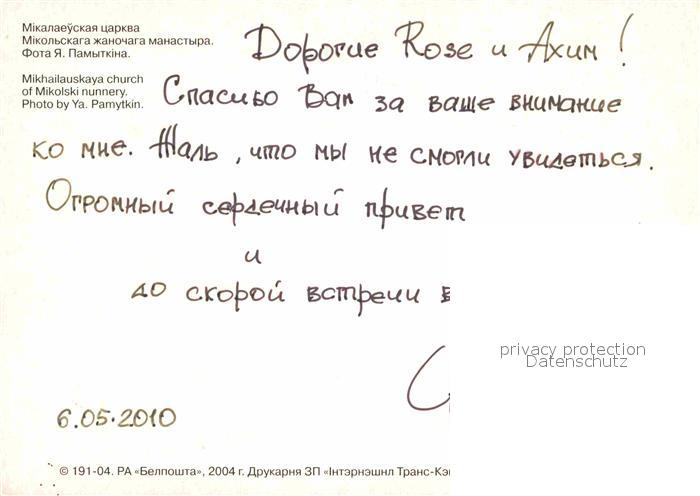 Мікалаеўская царква
Мікольскага жаночага манастыра.
Фота Я. Памыткіна.
Mikhailauskaya church
of Mikolski nunnery.
Photo by Ya. Pamytkin.
Дорогие Rose и Ахим!
Спасибо Вам за ваше внимание
ко мне. Жаль, что мы не смогли увидеться.
Огромный сердечный привет
и
до скорой встречи
privacy protection
Datenschutz
6.05.2010
© 191-04. РА «Белпошта», 2004 г. Друкарня ЗП «Інтэрнэшнл Транс-